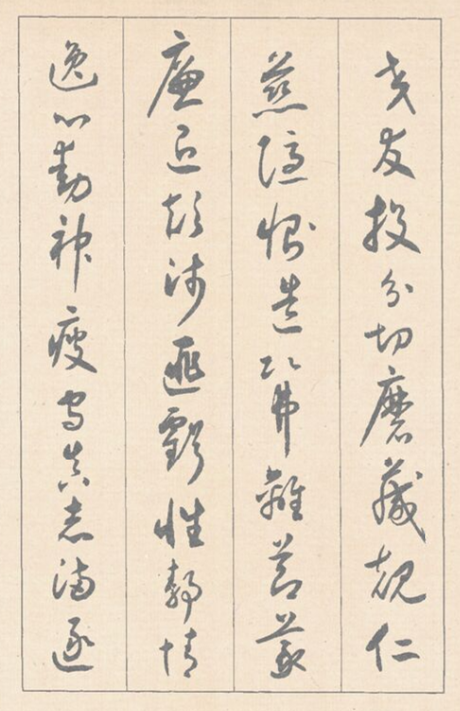 交友投分切磨箴規仁
慈隱惻造次弗離節義
廉退顛沛匪虧性靜情
逸心動神疲守真志滿逐